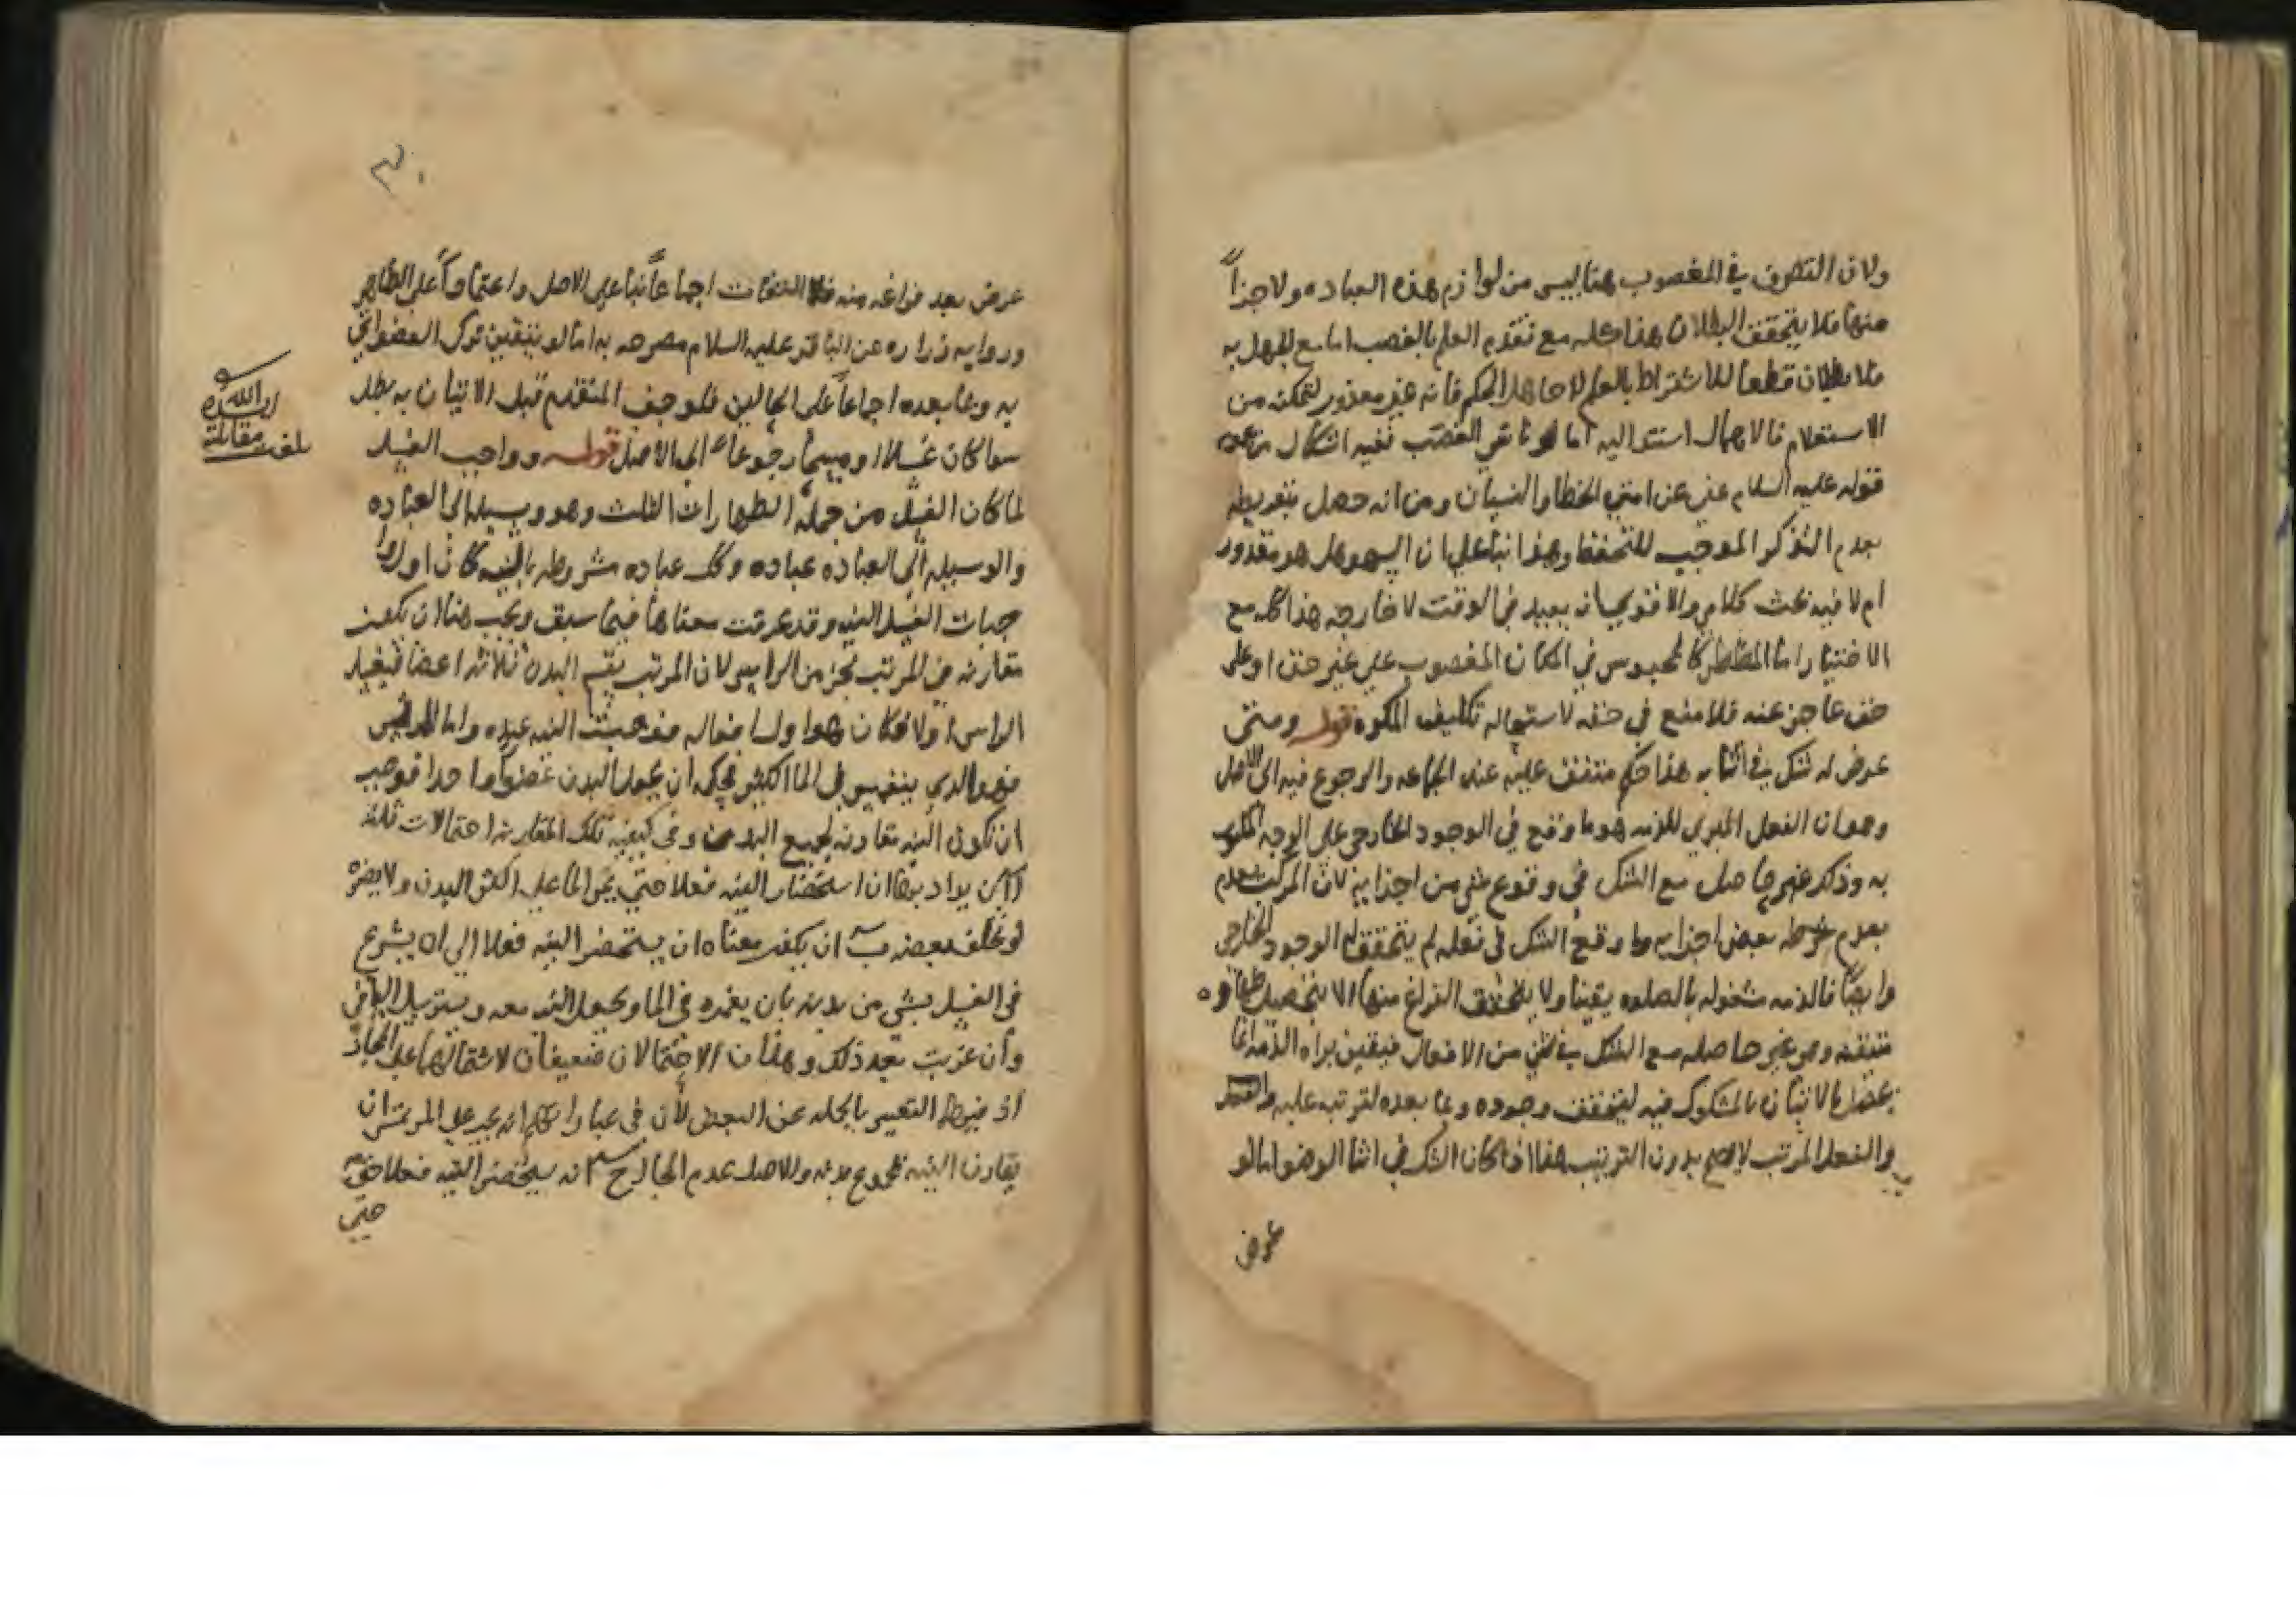 ولان التصرف في المغصوب هنا ليس من لوازم هذه العباده ولا جزاً
منها فلا يتحقق البطلان هذا كله مع تقدم العلم بالغصب اما مع الجهل به
فلا بطلان قطعا للاشتراط بالعلم لا جاهل الحكم فانه غير معذور لتمكنه من
الاستعلام فالاهمال استند اليه اما لو ناسي الغصب ففيه اشكال من
قوله عليه السلام عفي عن امتي الخطا والنسيان ومن انه حصل بتفريطه
بعدم التذكر الموجب للتحفظ وهذا بنا على ان السهو هل هو مقدور
ام لا فيه بحث كلامي والاقوي انه يعيد في الوقت لا خارجه هذا كله مع
الاختيار اما المضطر كالمحبوس في المكان المغصوب علي غير حق او على
حق عاجز عنه فلا منع في حقه لاستحاله تكليف المكره قوله ومتى
عرض له شك في اثنايه هذا حكم متفق عليه عند الجماعه والرجوع فيه الى الاصل
وهو ان الفعل المبري للذمه هو ما وقع في الوجود الخارجي على الوجه المامور
به وذلك غير حاصل مع الشك في وقوع شي من اجزايه لان المركب يعدم
بعدم بعض اجزايه وما وقع الشك في فعله لم يتحقق له الوجود الخارجي
وايضاً فالذمه مشغوله بالصلوه يقينا ولا يتحقق الفراغ منها الا بتحصيل طهاره
متيقنه وهو غير حاصله مع الشك في شي من الافعال فيقين براه الذمه انما
يحصل بالاتيان بالمشكوك فيه ليتحقق وجوده وبما بعده لترتبه عليه
والفعل المرتب لا يصح بدون الترتيب هذا اذا كان الشك في اثنا الوضوء اما لو
عرض
٣٠
عرض بعد فراغه منه فلا التفات اجماعاً بنا على الاصل واعتماداً على الظاهر
وروايه زراره عن الباقر عليه السلام مصرحه به اما لو تيقن ترك العضو اتي
به وبما بعده اجماعاً على الحالين فلو جف المتقدم قبل الاتيان به بطل
سوا كان غسلا او مسحا رجوعاً الى الاصل قوله وواجب الغسل
لما كان الغسل من جمله الطهارات الثلث وهو وسيله الى العباده
والوسيله الى العباده عباده وكل عباده مشروطه بالنيه كان اول وا
جبات الغسل النيه وقد عرفت معناها فيما سبق ويجب هنا ان تكون
مقارنه في المرتب لجزء من الراس لان المرتب يقسم البدن ثلاثه اعضا فيغسل
الراس اولا فكان هو اول افعاله فوجبت النيه عنده واما المرتمس
فهو الذي ينغمس في الما الكثير فحكمه ان يجعل البدن عضواً واحدا فوجب
ان تكون النيه مقارنه لجميع البدن وفي كيفيه تلك المقارنه احتمالات ثلثه
ا ان يراد بها ان استحضار النيه فعلا حتي يمر الما على اكثر البدن ولا يضره
لو تخلف بعضه ب ان يكون معناه ان يستحضر النيه فعلا الي ان يشرع
في الغسل بشي من بدنه بان يغمره في الما ويجعل النيه معه ويسترسل الباقي
وان عزبت بعد ذلك وهذان الاحتمالان ضعيفان لاشتمالهما على المجاز
اذ فيهما التعبير بالجمله عن البعض لان في عباراتهم انه يجب على المرتمس ان
يقارن النيه لجميع بدنه والاصل عدم المجاز ح انه يستحضر النيه فعلا
حتى
بلغت مقابلة